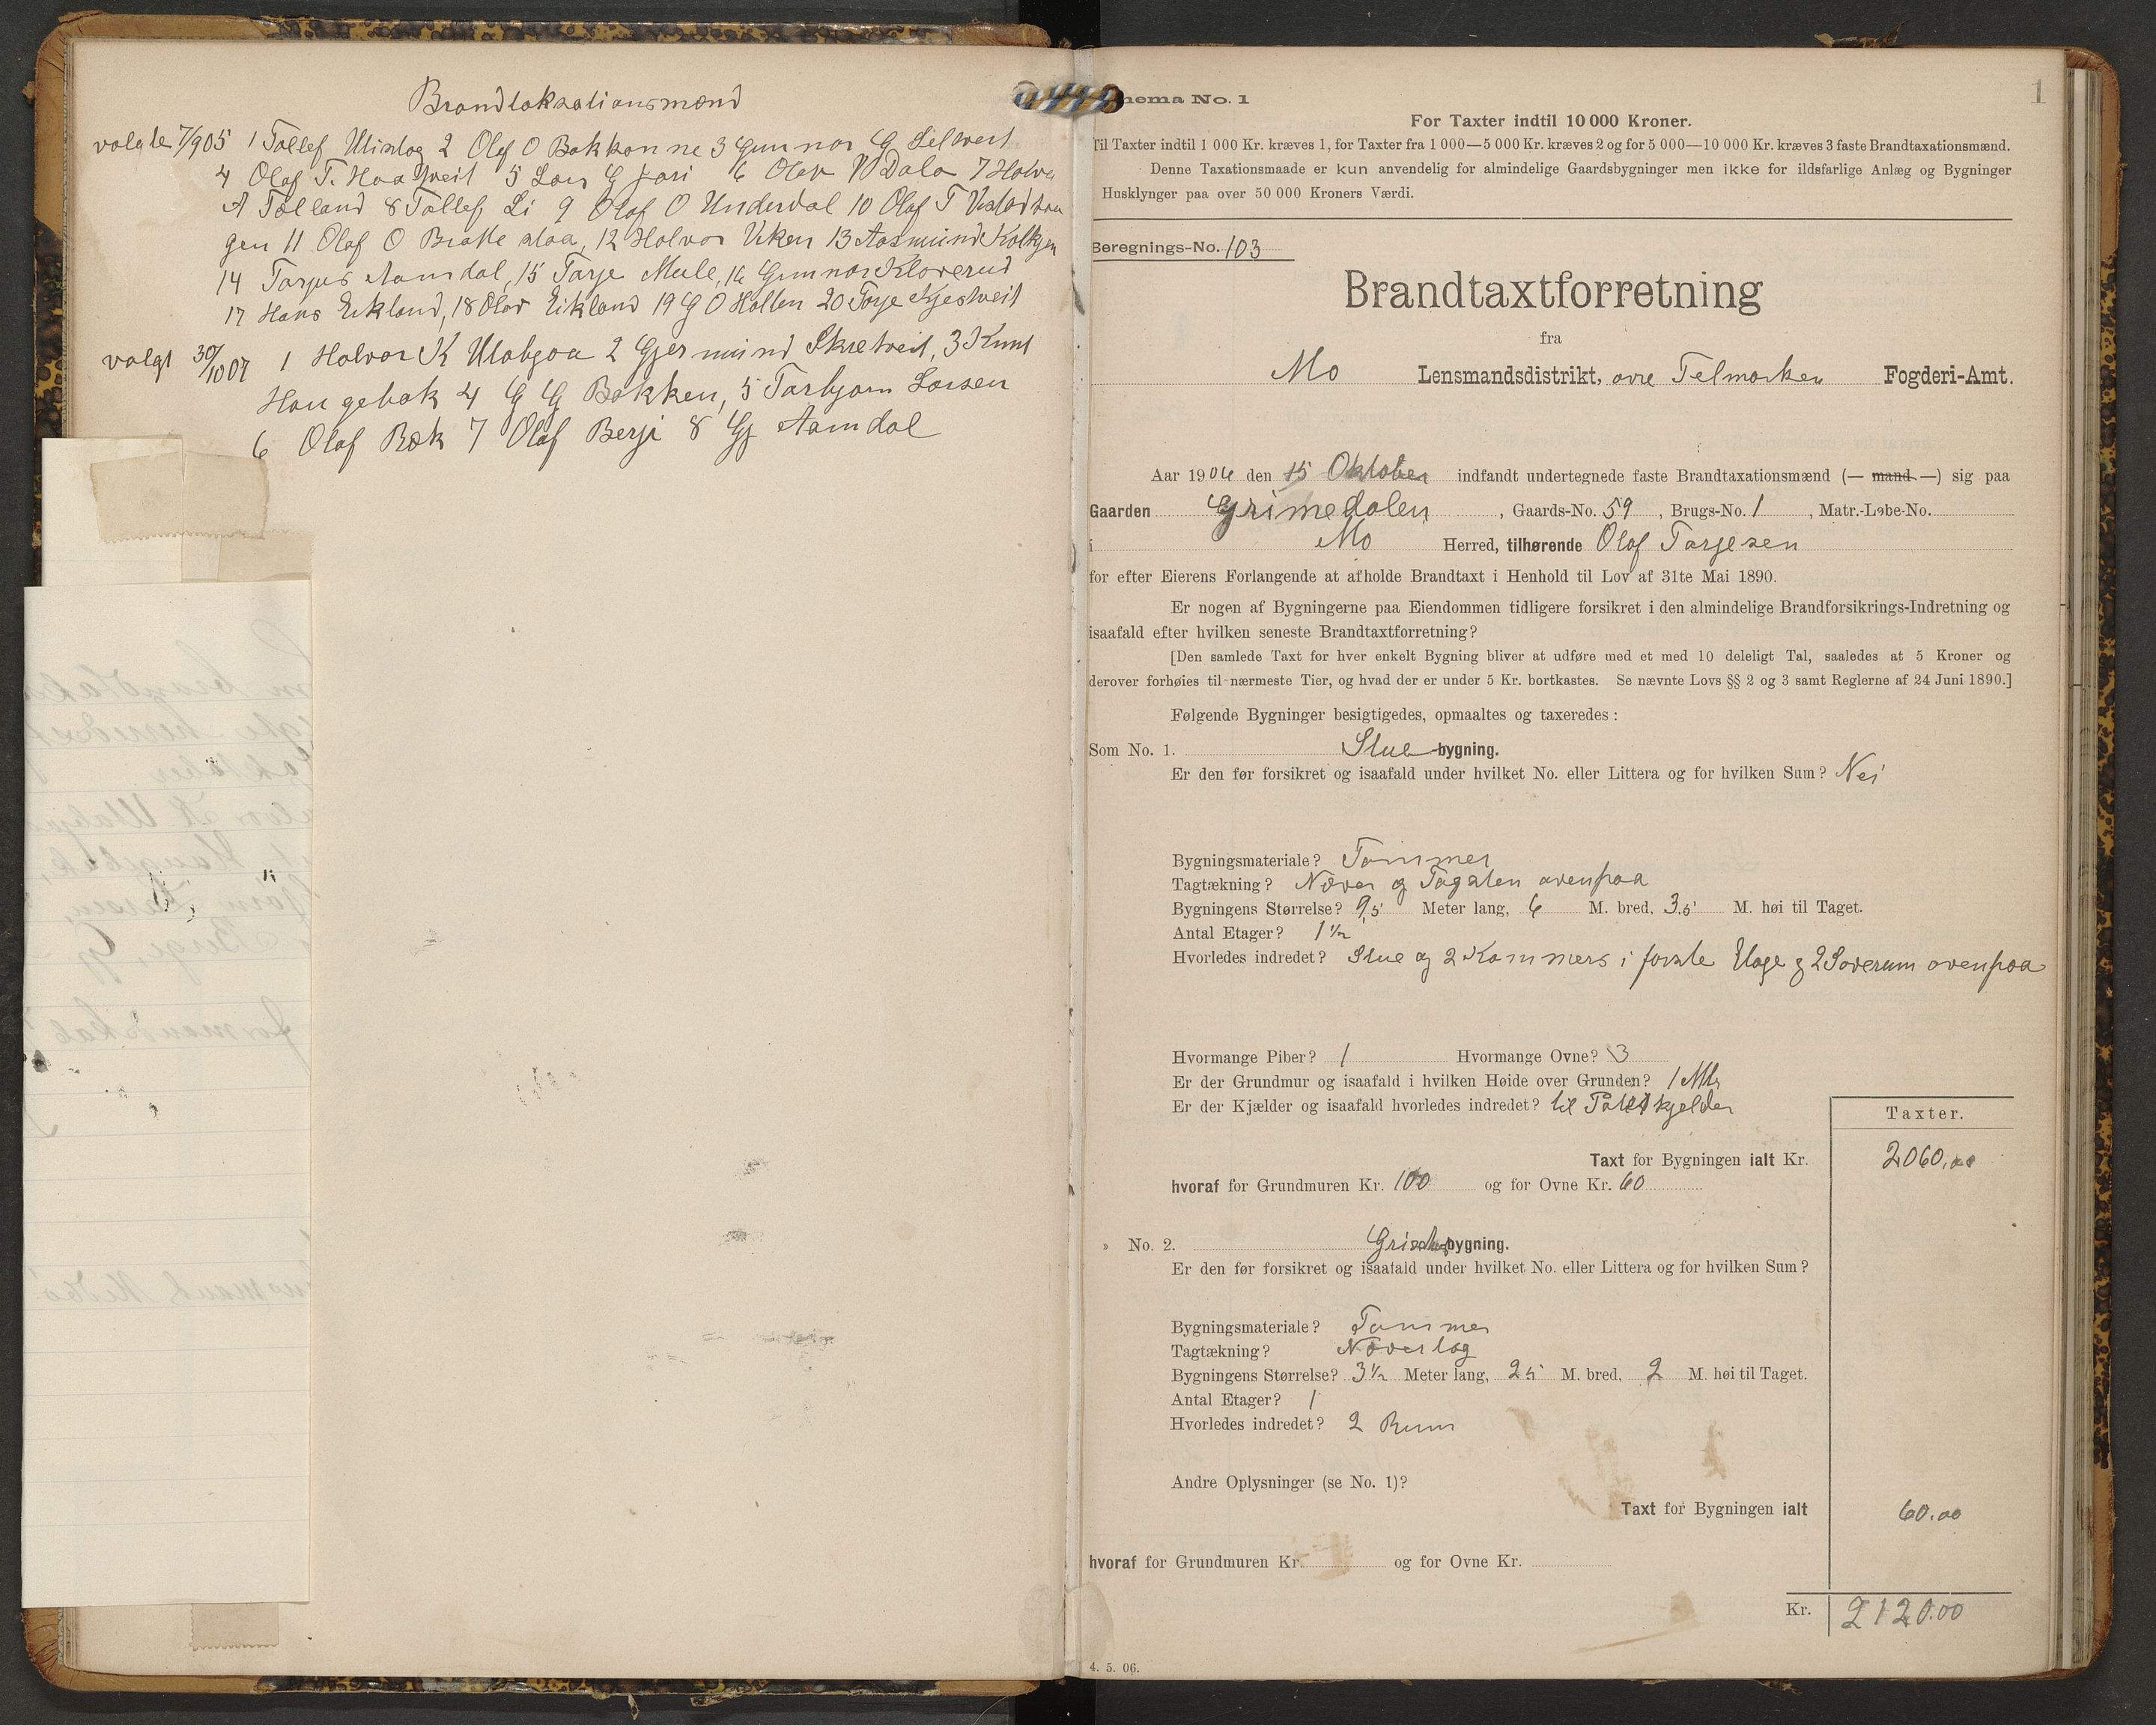 Brandtaksationsmænd
valgte 7/9 05 1 Tollef Ulislog 2 Olef O Bakkanne 3 Gunnar G Lilweit
4 Olaf T. Haatveit 5 Lars G Jori 6 Olav V Dala 7 Halvor
A Tælland 8 Tallef Li 9 Olaf O Underdal 10 Olaf T
gen 11 Olaf O 12 Halvor Viken 13 Aasmund
14 Tarjus Aamdal, 15 Tarje Mule, 16 Gunnar Kloverud
17 Hans Eikland, 18 Olav Eikland 19 G O Hallen 20 Tarje Kjestveit
valgt 30/10 07 1 Halvor K Utabjaa 2 Gjermund Skretveit, 3 Knut
Haugebak 4 G G Bakken, 5 Tarbjørn Larsen
6 Olaf Bæk 7 Olaf Berge 8 Gj Aamdal
1
hema No. 1
For Taxter indtil 10 000 Kroner.
Til Taxter indtil 1 000 Kr. kræves 1, for Taxter fra 1 000—5 000 Kr. kræves 2 og for 5 000—10 000 Kr. kræves 3 faste Brandtaxationsmænd.
Denne Taxationsmaade er kun anvendelig for almindelige Gaardsbygninger men ikke for ildsfarlige Anlæg og Bygninger
Husklynger paa over 50 000 Kroners Værdi.
Beregnings-No. 103
Brandtaxtforretning
fra
Mo Lensmandsdistrikt, øvre Telmarken Fogderi-Amt.
Aar 1906 den 15 Oktober indfandt undertegnede faste Brandtaxationsmænd (— mand —) sig paa
Gaarden Grimedalen, Gaards-No. 59, Brugs-No. 1, Matr.-Løbe-No.
i Mo Herred, tilhørende Olaf Tarjesen
for efter Eierens Forlangende at afholde Brandtaxt i Henhold til Lov af 31te Mai 1890.
Er nogen af Bygningerne paa Eiendommen tidligere forsikret i den almindelige Brandforsikrings-Indretning og
isaafald efter hvilken seneste Brandtaxtforretning?
[Den samlede Taxt for hver enkelt Bygning bliver at udføre med et med 10 deleligt Tal, saaledes at 5 Kroner og
derover forhøies til nærmeste Tier, og hvad der er under 5 Kr. bortkastes. Se nævnte Lovs §§ 2 og 3 samt Reglerne af 24 Juni 1890.]
Følgende Bygninger besigtigedes, opmaaltes og taxeredes:
Som No. 1. Stuebygning.
Er den før forsikret og isaafald under hvilket No. eller Littera og for hvilken Sum? Nei
Bygningsmateriale? Tømmer
Tagtækning? Næver og Tagsten ovenpaa
Bygningens Størrelse? 9,5 Meter lang, 6 M. bred, 3,5 M. høi til Taget.
Antal Etager? 1 1/2
Hvorledes indredet? Stue og 2 Kammers i første Etage og 2 Soverum ovenpaa
Hvormange Piber? 1 Hvormange Ovne? 3
Er der Grundmur og isaafald i hvilken Høide over Grunden? 1 Mtr
Er der Kjælder og isaafald hvorledes indredet? til Potetkjelder
Taxter.
Taxt for Bygningen ialt Kr. 2060.00
hvoraf for Grundmuren Kr. 100 og for Ovne Kr. 60
» No. 2. bygning.
Er den før forsikret og isaafald under hvilket No. eller Littera og for hvilken Sum?
Bygningsmateriale? Tømmer
Tagtækning? Nævertag
Bygningens Størrelse? 3 1/2 Meter lang, 2 5 M. bred, 2 M. høi til Taget.
Antal Etager? 1
Hvorledes indredet? 2 Rum
Andre Oplysninger (se No. 1)?
Taxt for Bygningen ialt 60.00
hvoraf for Grundmuren Kr. og for Ovne Kr.
Kr. 2120.00
4. 5. 06.